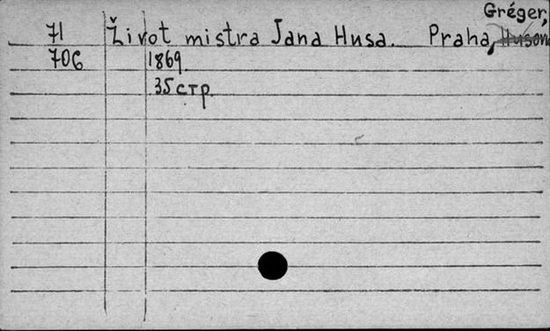 Gréger,
71 Život mistra Jana Husa. Praha,
706 1869.
35 стр.